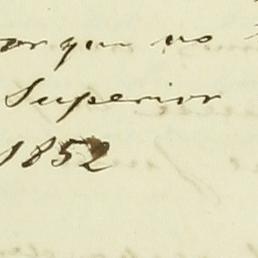 por que no
Superior
1852